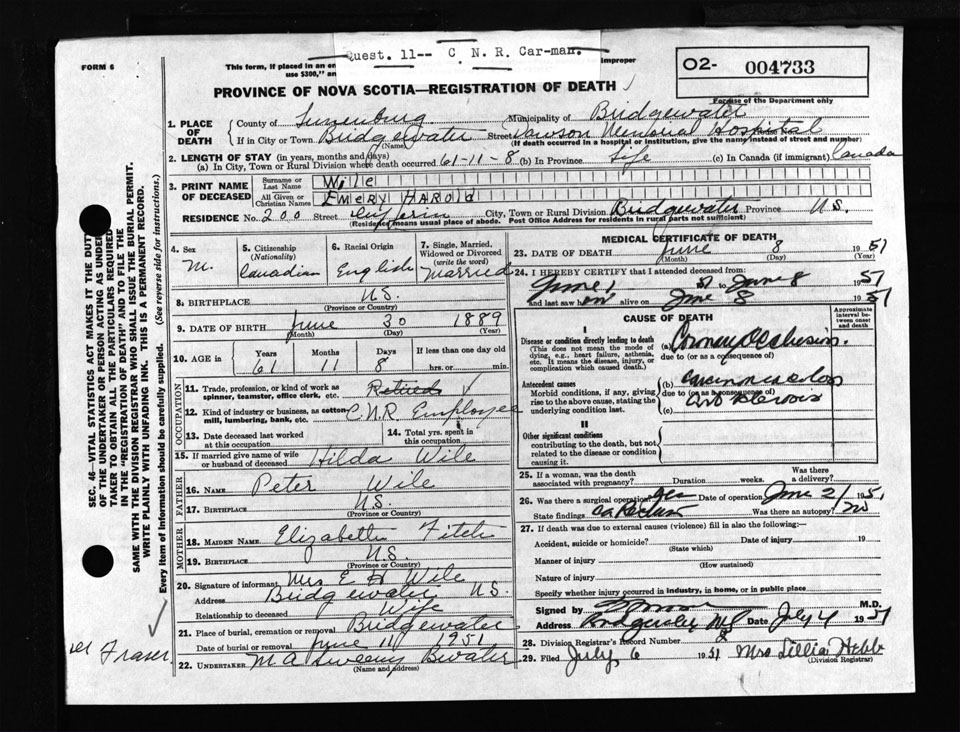 Quest. 11-- C. N. R. Car-man.
FORM 6
This form, if placed in an en improper
use $300," an
O2- 004733
For use of the Department only
PROVINCE OF NOVA SCOTIA—REGISTRATION OF DEATH
1. PLACE OF DEATH
County of Lunenburg Municipality of Bridgewater
If in City or Town Bridgewater Street Dawson Memorial Hospital
(Name) (If death occurred in a hospital or institution, give its name instead of street and number)
2. LENGTH OF STAY (in years, months and days)
(a) In City, Town or Rural Division where death occurred 61-11-8 (b) In Province Life (c) In Canada (if immigrant) Canada
3. PRINT NAME OF DECEASED
Surname or Last Name Wile
All Given or Christian Names EMERY HAROLD
RESIDENCE No. 200 Street Dufferin City, Town or Rural Division Bridgewater Province N.S.
(Residence means usual place of abode. Post Office Address for residents in rural parts not sufficient)
4. Sex M.
5. Citizenship (Nationality) Canadian
6. Racial Origin English
7. Single, Married, Widowed or Divorced (write the word) Married
8. BIRTHPLACE N.S.
(Province or Country)
9. DATE OF BIRTH June 30 1889
(Month) (Day) (Year)
10. AGE in Years Months Days If less than one day old
61 11 8 hrs. or min.
OCCUPATION
11. Trade, profession, or kind of work as spinner, teamster, office clerk, etc. Retired
12. Kind of industry or business, as cotton-mill, lumbering, bank, etc. C.N.R. Employee
13. Date deceased last worked at this occupation
14. Total yrs. spent in this occupation
15. If married give name of wife or husband of deceased Hilda Wile
FATHER
16. Name Peter Wile
17. Birthplace N.S.
(Province or Country)
MOTHER
18. Maiden Name Elizabeth Fitch
19. Birthplace N.S.
(Province or Country)
20. Signature of informant Mrs E H Wile
Address Bridgewater N.S.
Relationship to deceased Wife
21. Place of burial, cremation or removal Bridgewater
Date of burial or removal June 11 1951
22. UNDERTAKER M A Sweeny Bwater
(Name and address)
MEDICAL CERTIFICATE OF DEATH
23. DATE OF DEATH June 8 1951
(Month) (Day) (Year)
24. I HEREBY CERTIFY that I attended deceased from:
June 1 51 to June 8 1951
and last saw him alive on June 8 1951
CAUSE OF DEATH
Approximate interval between onset and death
I
Disease or condition directly leading to death (a) Coronary Occlusion.
(This does not mean the mode of dying, e.g., heart failure, asthenia, etc. It means the disease, injury, or complication which caused death.
due to (or as a consequence of)
Antecedent causes (b) Carcinoma
Morbid conditions, if any, giving rise to the above cause, stating the underlying condition last.
due to (or as a consequence of)
(c)
II
Other significant conditions
contributing to the death, but not related to the disease or condition causing it.
25. If a woman, was the death associated with pregnancy? Duration weeks. Was there a delivery?
26. Was there a surgical operation yes Date of operation June 2/ 1951
State findings Was there an autopsy? no
27. If death was due to external causes (violence) fill in also the following:—
Accident, suicide or homicide? Date of injury 19
(State which)
Manner of injury
(How sustained)
Nature of injury
Specify whether injury occurred in industry, in home, or in public place
Signed by M.D.
Address Bridgewater NS Date July 4 1951
28. Division Registrar's Record Number 8
29. Filed July 6 1951 Mrs Lillia Hebb
(Division Registrar)
SEC. 46—VITAL STATISTICS ACT MAKES IT THE DUTY
OF THE UNDERTAKER OR PERSON ACTING AS UNDER-
TAKER TO OBTAIN ALL THE PARTICULARS REQUIRED
IN THE "REGISTRATION OF DEATH" AND TO FILE THE
SAME WITH THE DIVISION REGISTRAR WHO SHALL ISSUE THE BURIAL PERMIT.
WRITE PLAINLY WITH UNFADING INK. THIS IS A PERMANENT RECORD.
Every item of information should be carefully supplied. (See reverse side for instructions.)
Fraser